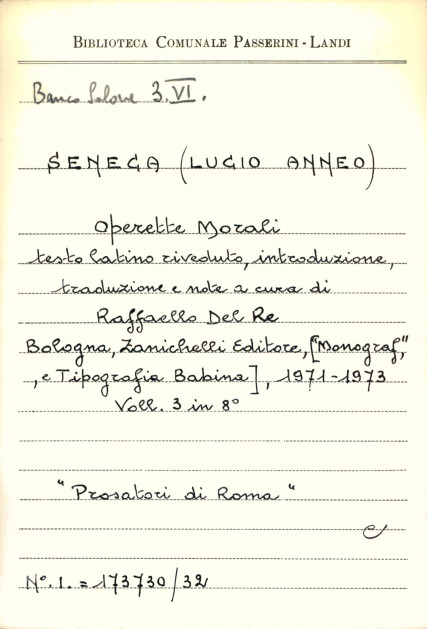 BIBLIOTECA COMUNALE PASSERINI - LANDI
Banco Salone 3.VI.
SENECA (LUCIO ANNEO)
Operette Morali
testo latino riveduto, introduzione,
traduzione e note a cura di
Raffaello Del Re
Bologna, Zanichelli Editore, ["Monograf",
, e Tipografia Babina], 1971-1973
Voll. 3 in 8°
"Prosatori di Roma"
e
N°. I. = 173730/32